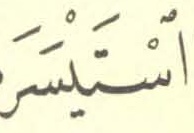 ٱسْتَيْسَرَ